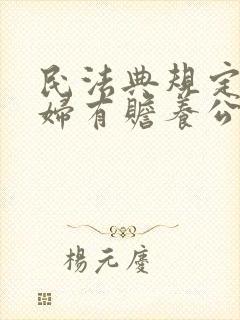 民法典規定
婦有贍養公
楊元慶